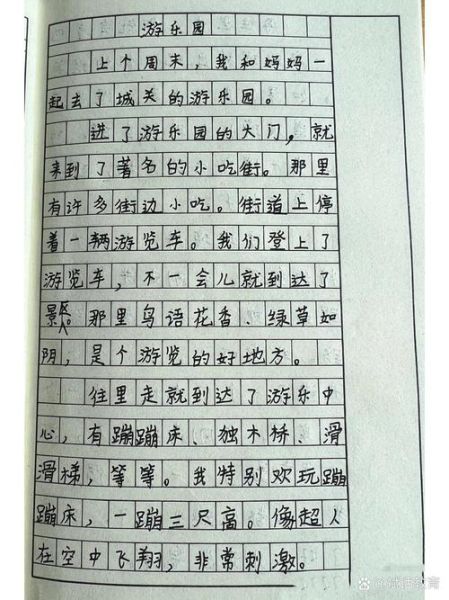 游乐园
上个周末，我和妈妈一
起去了城关的游乐园。
进了游乐园的大门，就
来到了著名的小吃街。那里
有许多街边小吃。街道上停
着一辆游览车。我们登上了
游览车，不一会儿就到达了
景区。那里鸟语花香、绿草如
阴，是个游览的好地方。
往里走就到达了游乐中
心，有蹦蹦床、独木桥、滑
滑梯，等等。我特别欢玩蹦
蹦床，一蹦三尺高。像超人
在空中飞翔，非常刺激。